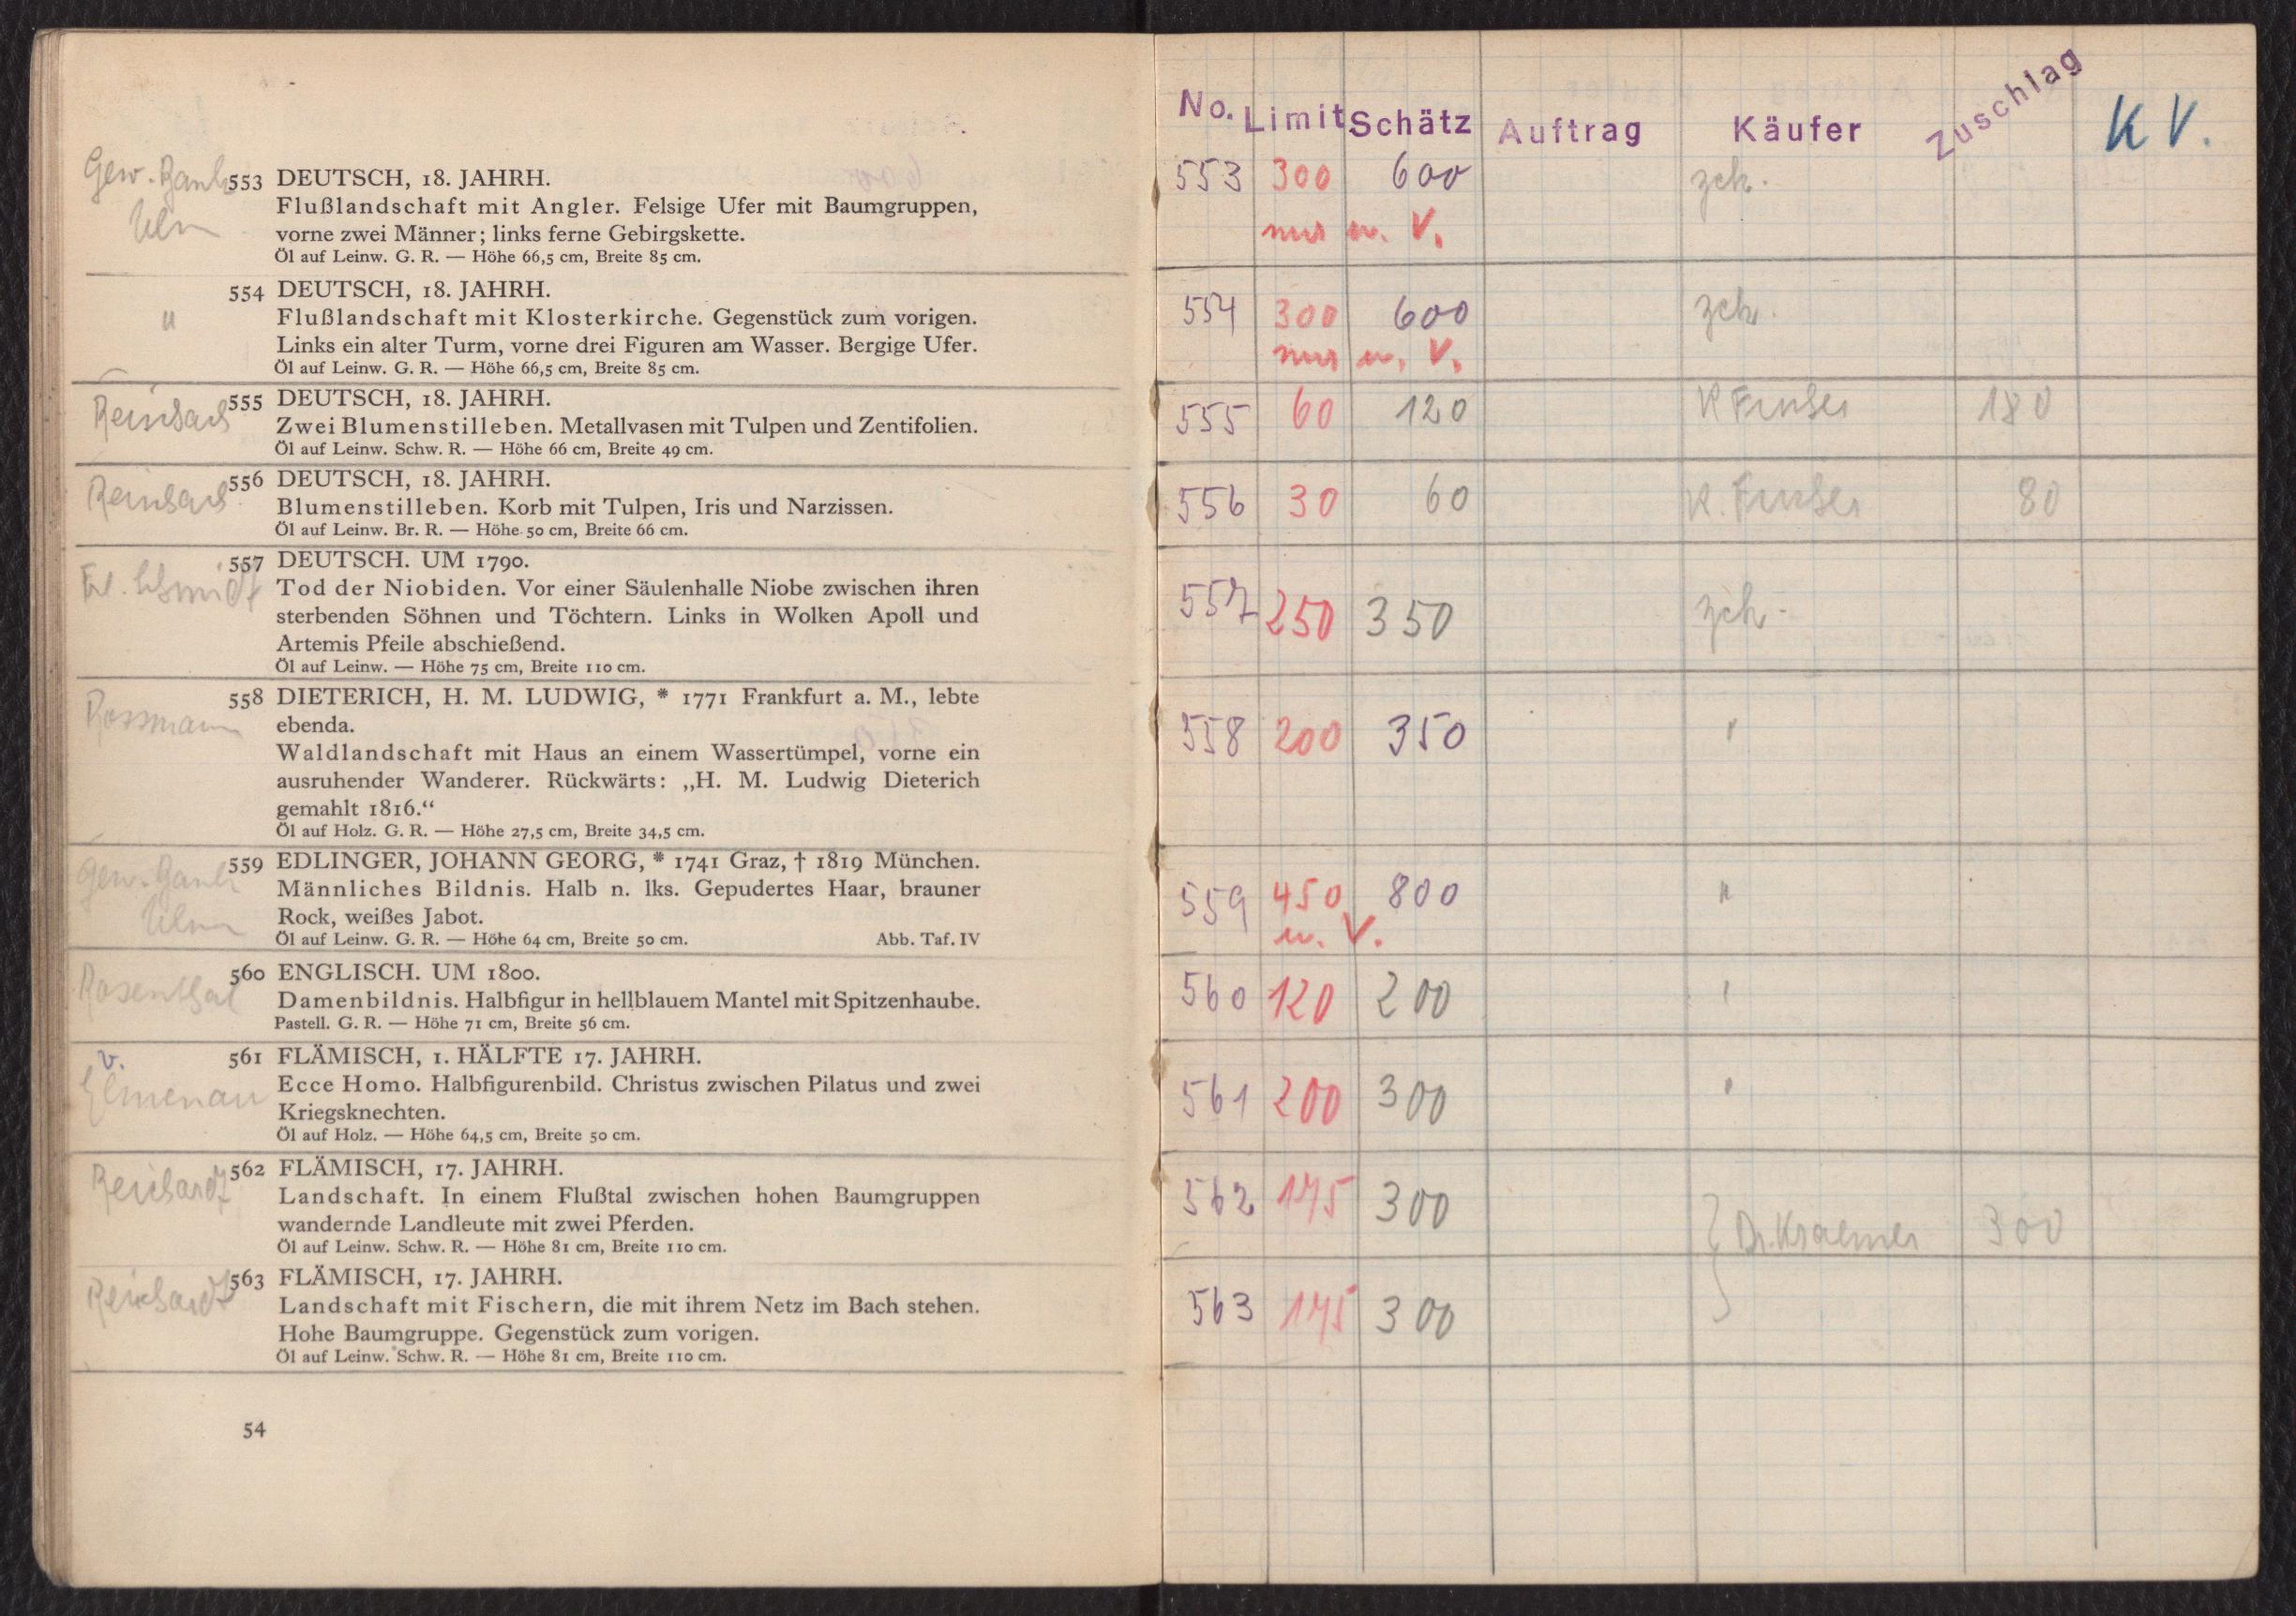 Gew. Bank
Ulm
553 DEUTSCH, 18. JAHRH.
Flußlandschaft mit Angler. Felsige Ufer mit Baumgruppen,
vorne zwei Männer; links ferne Gebirgskette.
Öl auf Leinw. G. R. — Höhe 66,5 cm, Breite 85 cm.
"
554 DEUTSCH, 18. JAHRH.
Flußlandschaft mit Klosterkirche. Gegenstück zum vorigen.
Links ein alter Turm, vorne drei Figuren am Wasser. Bergige Ufer.
Öl auf Leinw. G. R. — Höhe 66,5 cm, Breite 85 cm.
555 DEUTSCH, 18. JAHRH.
Zwei Blumenstilleben. Metallvasen mit Tulpen und Zentifolien.
Öl auf Leinw. Schw. R. — Höhe 66 cm, Breite 49 cm.
556 DEUTSCH, 18. JAHRH.
Blumenstilleben. Korb mit Tulpen, Iris und Narzissen.
Öl auf Leinw. Br. R. — Höhe 50 cm, Breite 66 cm.
Schmidt
557 DEUTSCH. UM 1790.
Tod der Niobiden. Vor einer Säulenhalle Niobe zwischen ihren
sterbenden Söhnen und Töchtern. Links in Wolken Apoll und
Artemis Pfeile abschießend.
Öl auf Leinw. — Höhe 75 cm, Breite 110 cm.
Rossmann
558 DIETERICH, H. M. LUDWIG, * 1771 Frankfurt a. M., lebte
ebenda.
Waldlandschaft mit Haus an einem Wassertümpel, vorne ein
ausruhender Wanderer. Rückwärts: „H. M. Ludwig Dieterich
gemahlt 1816.“
Öl auf Holz. G. R. — Höhe 27,5 cm, Breite 34,5 cm.
Gew. Bank
Ulm
559 EDLINGER, JOHANN GEORG, * 1741 Graz, † 1819 München.
Männliches Bildnis. Halb n. lks. Gepudertes Haar, brauner
Rock, weißes Jabot.
Öl auf Leinw. G. R. — Höhe 64 cm, Breite 50 cm. Abb. Taf. IV
Rosenthal
560 ENGLISCH. UM 1800.
Damenbildnis. Halbfigur in hellblauem Mantel mit Spitzenhaube.
Pastell. G. R. — Höhe 71 cm, Breite 56 cm.
v.
Elmenau
561 FLÄMISCH, 1. HÄLFTE 17. JAHRH.
Ecce Homo. Halbfigurenbild. Christus zwischen Pilatus und zwei
Kriegsknechten.
Öl auf Holz. — Höhe 64,5 cm, Breite 50 cm.
Reichardt
562 FLÄMISCH, 17. JAHRH.
Landschaft. In einem Flußtal zwischen hohen Baumgruppen
wandernde Landleute mit zwei Pferden.
Öl auf Leinw. Schw. R. — Höhe 81 cm, Breite 110 cm.
Reichardt
563 FLÄMISCH, 17. JAHRH.
Landschaft mit Fischern, die mit ihrem Netz im Bach stehen.
Hohe Baumgruppe. Gegenstück zum vorigen.
Öl auf Leinw. Schw. R. — Höhe 81 cm, Breite 110 cm.
54
No. Limit Schätz Auftrag Käufer Zuschlag KV.
553 300 600 zck.
nur u. V.
554 300 600 zck.
nur u. V.
555 60 120 180
556 30 60 80
557 250 350 zck.
558 200 350 "
559 450 800 "
u. V.
560 120 200 "
561 200 300 "
562 175 300 Dr. Kraemer 300
563 175 300